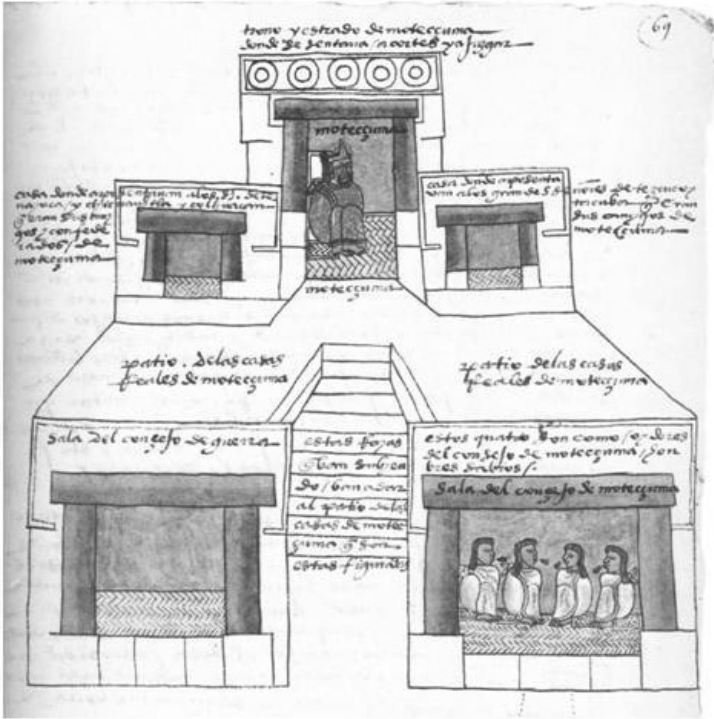 69
trono y estrado de motecçuma
donde se sentava a cortes y a juzgar
motecçuma
casa donde aposentavan a los s.s de te
nayuca / y chicunauhtla y culhuacan
q̃ eran sus ami
gos / confede
rados / de
motecçuma
casa donde aposenta
van a los grandes señores de tezcuco /
tacuba, q̃ eran
sus amigos de
motecçuma
motecçuma
patio . delas casas
Reales de motecçuma
patio delas casas
Reales de motecçuma
sala del consejo de guerra
estas Rayas
q̃ van subie
do / van a dar
al patio delas
casas de motec
çuma q̃ son
estas figurados
estos quatro son como / oydores
del consejo de motecçuma / hon
bres sabios /.
sala del consejo de motecçuma